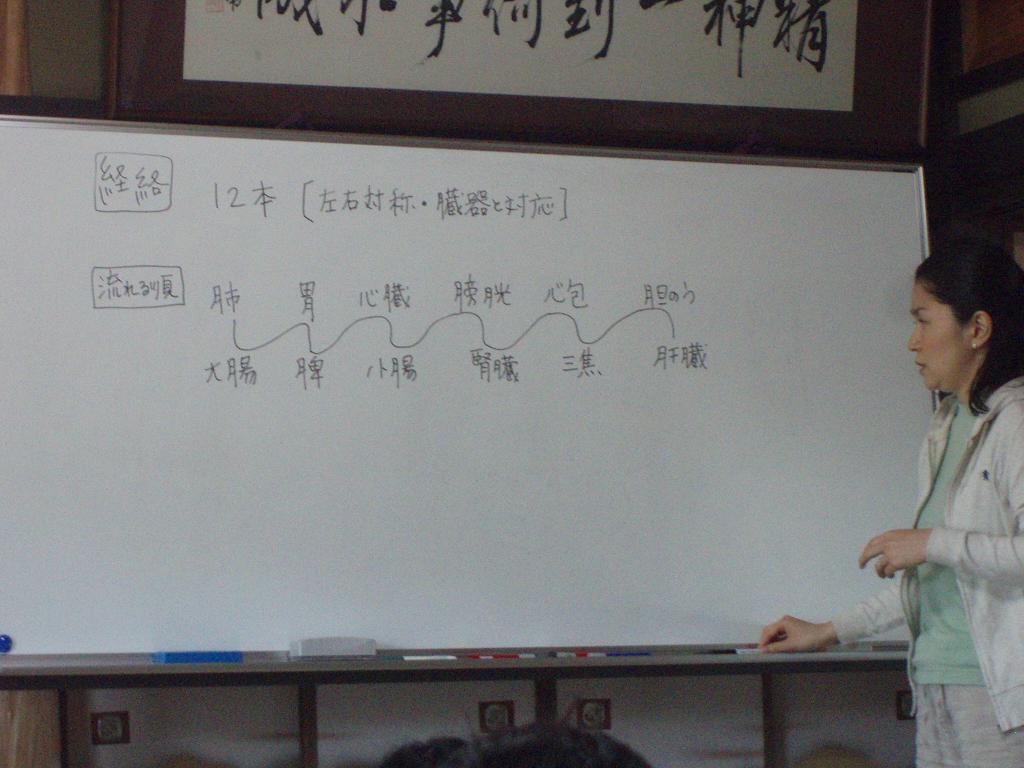 精神一到何事不成
経絡 12本 [左右対称・臓器と対応]
流れる順 肺 胃 心臓 膀胱 心包 胆のう
大腸 脾 小腸 腎臓 三焦 肝臓